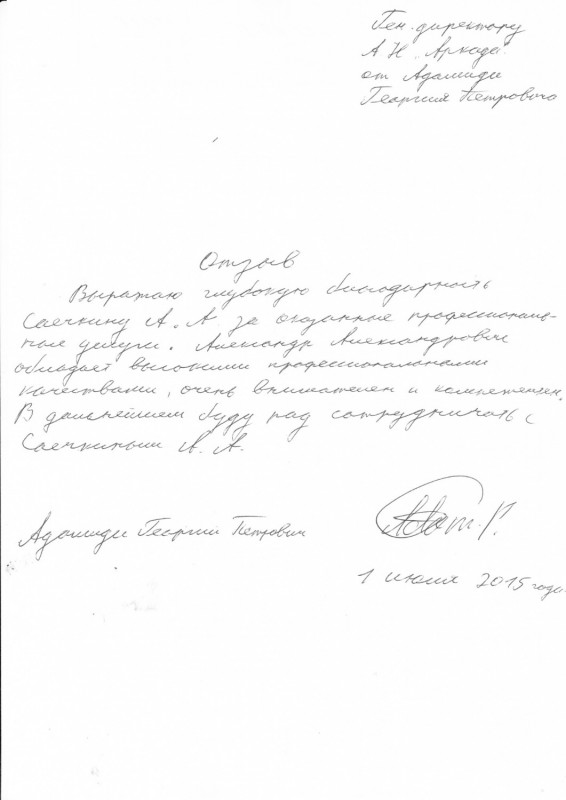 Ген. директору
АН "Аркада"
от Адамиди
Георгия Петровича
Отзыв
Выражаю глубокую благодарность
Саечкину А. А. за оказанные профессиональ-
ные услуги. Александр Александрович
обладает высокими профессиональными
качествами, очень внимателен и компетентен.
В дальнейшем буду рад сотрудничать с
Саечкиным А. А.
Адамиди Георгий Петрович
1 июля 2015 года.